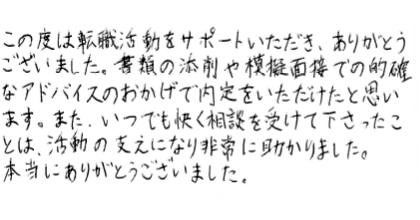 この度は転職活動をサポートいただき、ありがとう
ございました。書類の添削や模擬面接での的確
なアドバイスのおかげで内定をいただけたと思い
ます。また、いつでも快く相談を受けて下さったこ
とは、活動の支えになり非常に助かりました。
本当にありがとうございました。